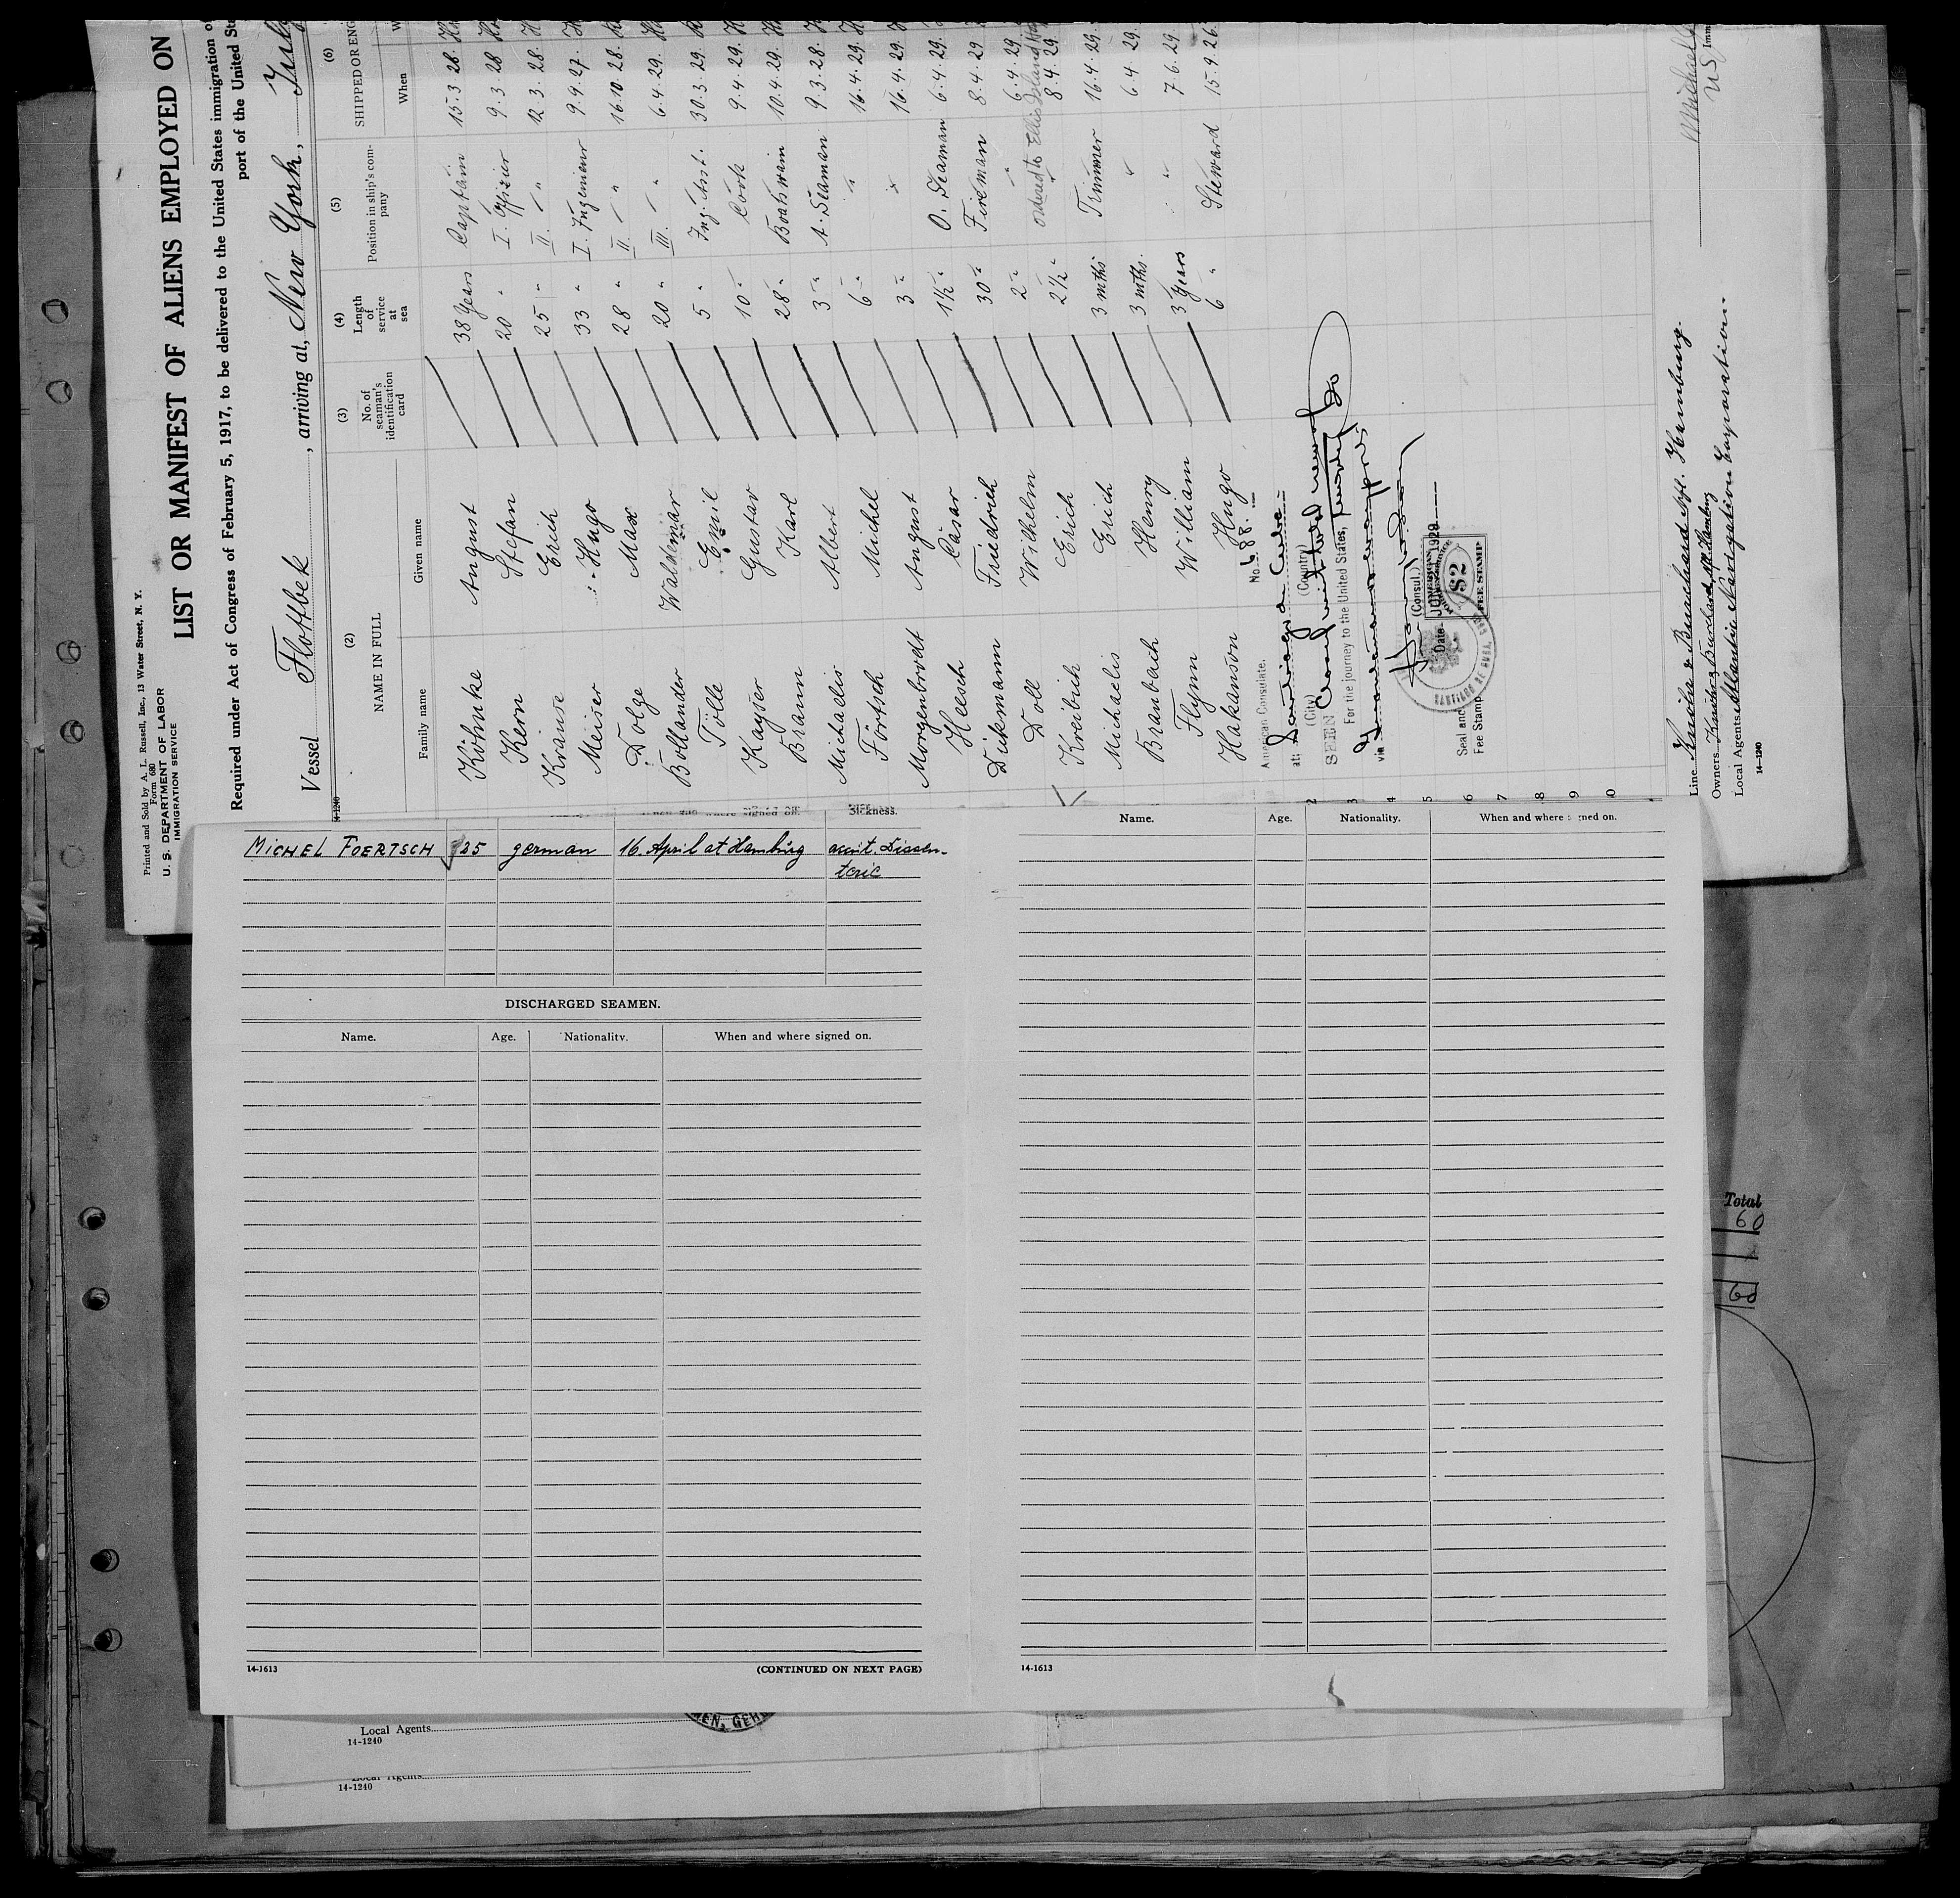 Printed and Sold by A. L. Russell, Inc., 13 Water Street, N. Y.
Form 680
U. S. DEPARTMENT OF LABOR
IMMIGRATION SERVICE
LIST OR MANIFEST OF ALIENS EMPLOYED ON
Required under Act of Congress of February 5, 1917, to be delivered to the United States immigration
port of the United
Vessel Flottbek, arriving at, New York, July
14-1240
(2) (3) (4) (5) (6)
NAME IN FULL No. of seaman's identification card Length of service at sea Position in ship's company SHIPPED OR ENG
Family name Given name When
Köhnke August 38 Years Captain 15.3.28.
Kern Stefan 20 " I. Offizier 9.3.28
Krause Erich 25 " II. " 12.3.28.
Meiser Hugo 33 " I. Ingenieur 9.9.27.
Dolge Max 28 " II. " 16.10.28.
Bollander Waldemar 20 " III. " 6.4.29.
Tölle Emil 5 " Ing. Asst. 30.3.29.
Kayser Gustav 10 " Cook 9.4.29.
Brann Karl 28 " Boatswain 10.4.29.
Michaelis Albert 3 " A. Seaman 9.3.28.
Förtsch Michel 6 " " 16.4.29.
Morgenbrodt August 3 " " 16.4.29.
Heesch Cäsar 1½ " O. Seaman 6.4.29.
Dikmann Friedrich 30 " Fireman 8.4.29
Doll Wilhelm 2 " " 6.4.29.
ordered to Ellis Island
Kreibich Erich 2½ " " 8.4.29
Michaelis Erich 3 mths Trimmer 16.4.29.
Branbach Henry 3 mths. " 6.4.29.
Flynn William 3 Years " 7.6.29
Hakanson Hugo 6 " Steward 15.9.26.
American Consulate.
No. 88.
at: Santiago Cuba
(City) (Country)
SEEN
For the journey to the United States,
via
(Consul.)
Date 1929
$2
FEE STAMP
Seal and
Fee Stamp
2
3
4
5
6
7
8
9
0
Line Knöhr & Burchard Nfl. Hamburg.
Owners Knöhr & Burchard Nfl. Hamburg
Local Agents Atlantic Navigation Corporation.
14-1240
Sickness.
MICHEL FOERTSCH 25 german 16. April at Hamburg accut. Dissen-
terie
DISCHARGED SEAMEN.
Name. Age. Nationality. When and where signed on.
14-1613 (CONTINUED ON NEXT PAGE)
Name. Age. Nationality. When and where signed on.
14-1613
Total
60
60
Local Agents
14-1240
Local Agents
14-1240